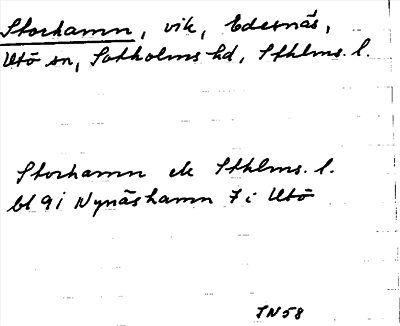 Storhamn, vik, Edesnäs,
Utö sn, Sotholms hd, Sthlms. l.
Storhamn ek Sthlms. l.
bl 9i Nynäshamn 7i Utö
IN58